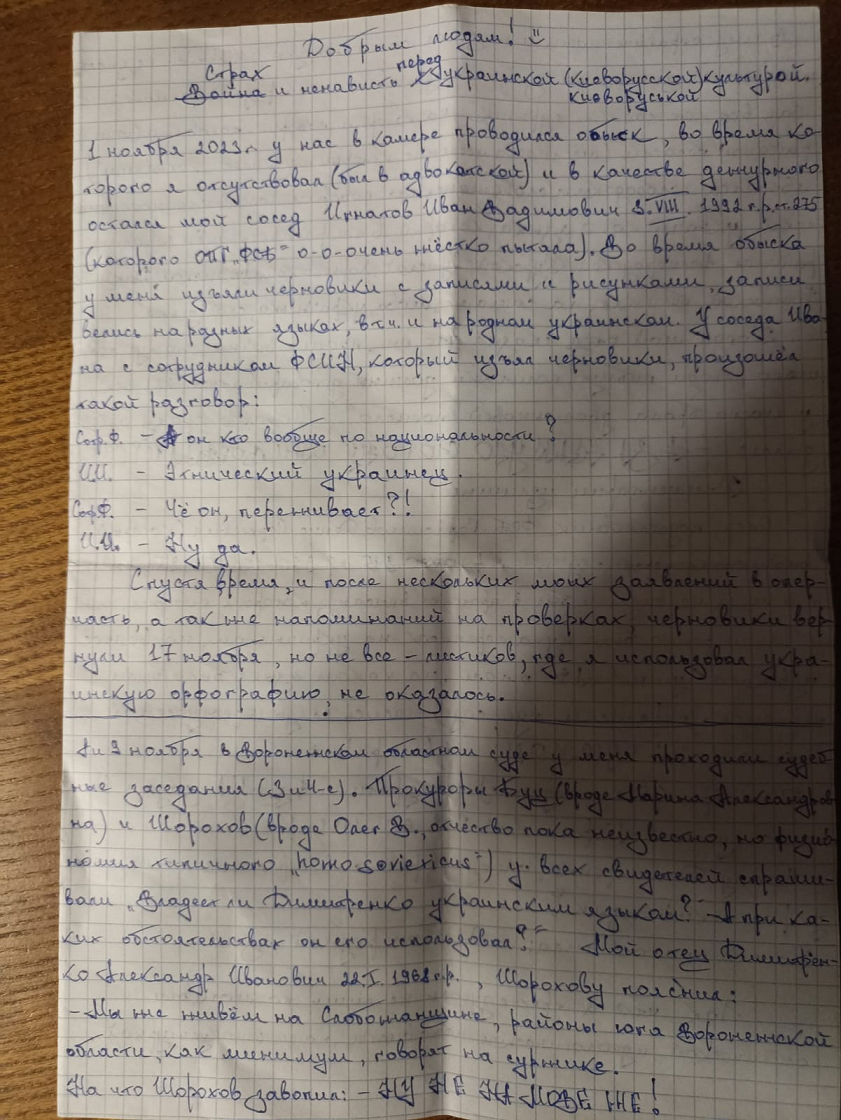 Добрым людям!
Страх перед
Война и ненависть к украинской (киеворусской) культурой.
киеворуськой
1 ноября 2023г. у нас в камере проводился обыск, во время ко-
торого я отсутствовал (был в адвокатской) и в качестве дежурного
остался мой сосед Игнатов Иван Вадимович 3.VIII. 1992 г.р. ст. 275
(которого ОПГ „ФСБ" о-о-очень жёстко пытала). Во время обыска
у меня изъяли черновики с записями и рисунками, записи
велись на разных языках, в т.ч. и на родном украинском. У соседа Ива-
на с сотрудником ФСИН, который изъял черновики, произошёл
такой разговор:
Сотр.Ф. – А он кто вообще по национальности?
И.И. – Этнический украинец.
Сотр.Ф. – Чё он, переживает?!
И.И. – Ну да.
Спустя время, и после нескольких моих заявлений в опер-
часть, а также напоминаний на проверках, черновики вер-
нули 17 ноября, но не все – листиков, где я использовал укра-
инскую орфографию, не оказалось.
и 9 ноября в Воронежском областном суде у меня проходили судеб-
ные заседания (3 и 4-е). Прокуроры Буц (вроде Марина Александров-
на) и Шорохов (вроде Олег В., отчество пока неизвестно, но физио-
номия типичного „homo sovieticus") у всех свидетелей спраши-
вали „Владеет ли Димитренко украинским языком?" „А при ка-
ких обстоятельствах он его использовал?" Мой отец Димитрен-
ко Александр Иванович 22.I. 1968 г.р., Шорохову пояснил:
– Мы же живём на Слобожанщине, районы юга Воронежской
области, как минимум, говорят на суржике.
На что Шорохов завопил: – НУ НЕ НА МОВЕ ЖЕ!